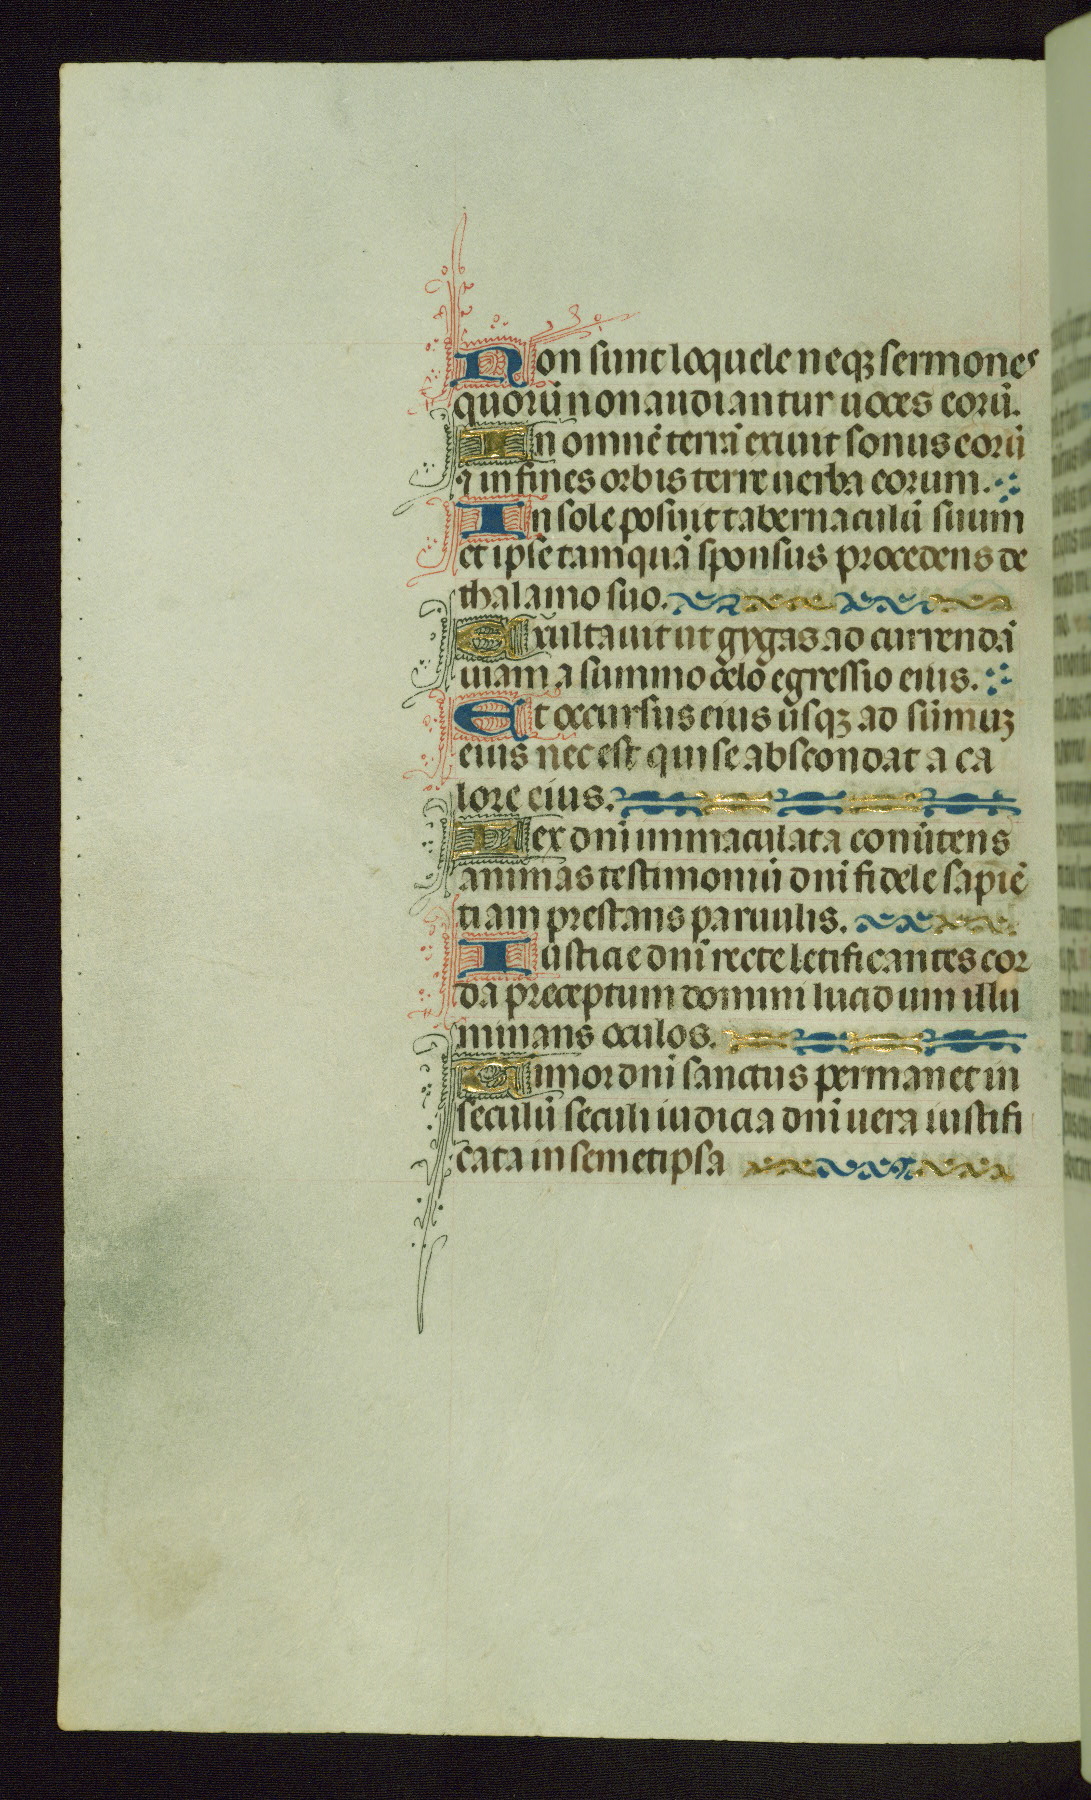 Non sunt loquele neqꝫ sermones
quorū non audiantur uoces eorū.
In omnē terrā exiuit sonus eorū
⁊ in fines orbis terre uerba eorum.
In sole posuit tabernaculū suum
et ipse tamquā sponsus procedens de
thalamo suo.
Exultauit ut gygas ad currendā
uiam a summo celo egressio eius.
Et occursus eius usqꝫ ad sūmuꝫ
eius nec est qui se abscondat a ca
lore eius.
Lex dnī immaculata conūtens
animas testimoniū dnī fidele sapiē
tiam prestans paruulis.
Iusticie dnī recte letificantes cor
da preceptum domini lucidum illu
minans oculos.
Timor dnī sanctus permanet in
seculū seculi iudicia dnī uera iustifi
cata in semetipsa